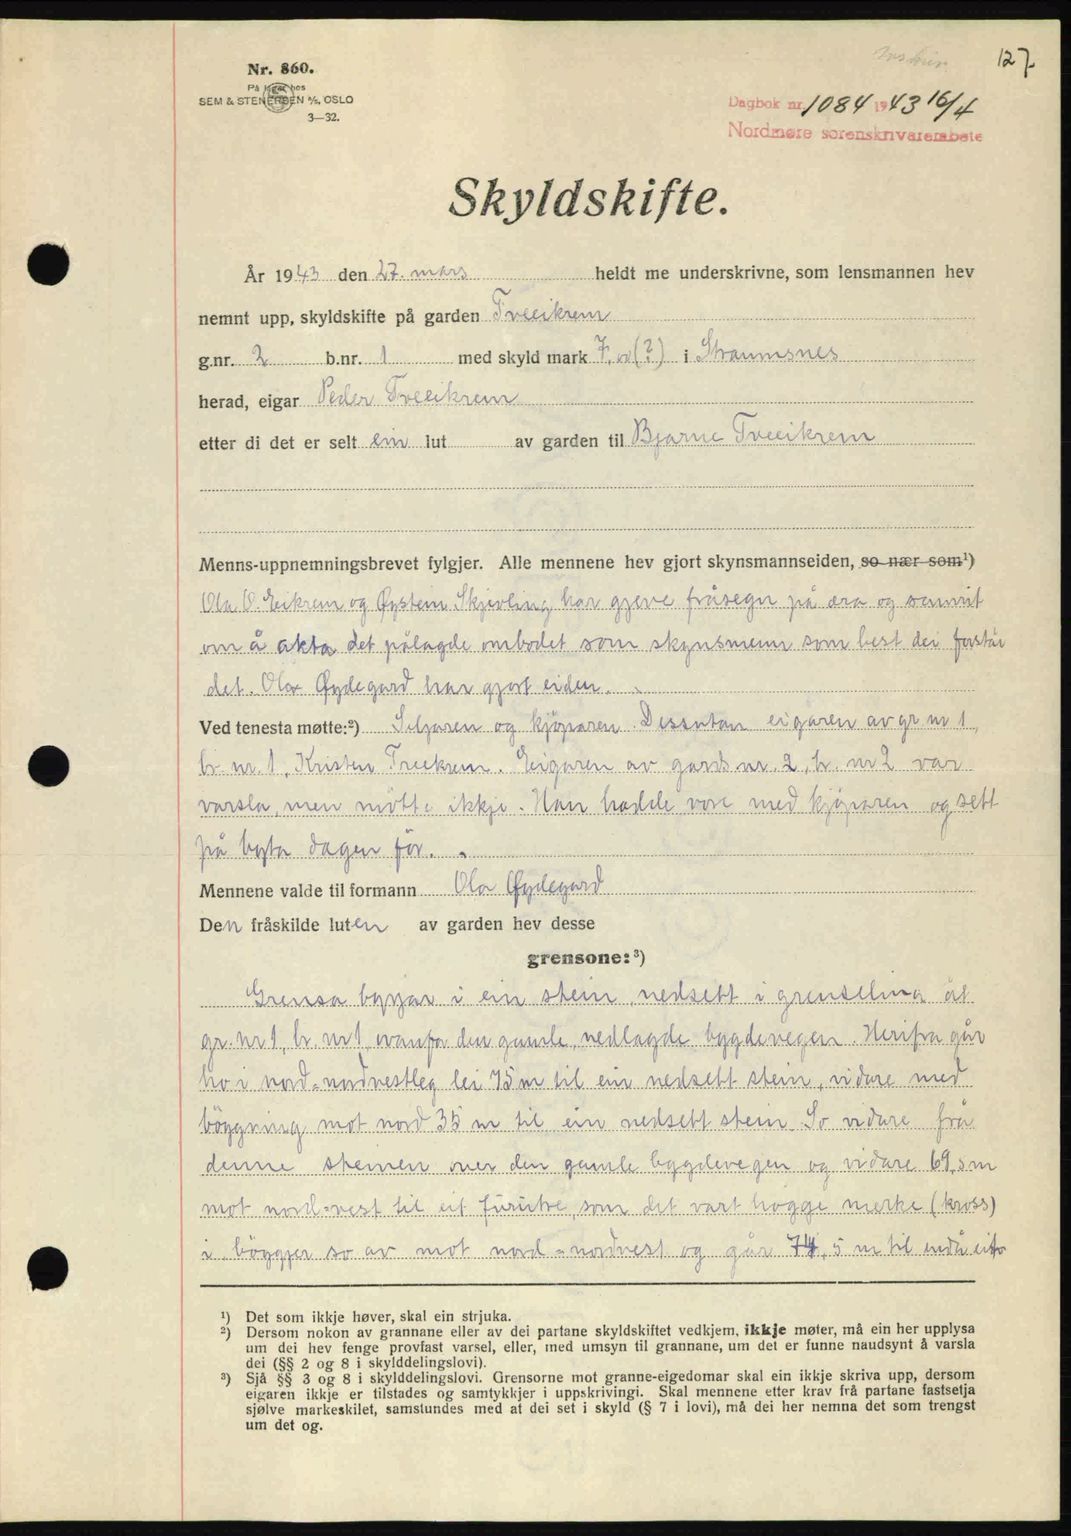 127
Nr. 860.
På lager hos
SEM & STENERSEN A/S, OSLO
3—32.
Dagbok nr. 1084 1943 16/4
Nordmøre sorenskrivarembete
Skyldskifte.
År 1943 den 27. mars heldt me underskrivne, som lensmannen hev
nemnt upp, skyldskifte på garden Tveeikrem
g.nr. 2 b.nr. 1 med skyld mark 7, (?) i Straumsnes
herad, eigar Peder Tveeikrem
etter di det er selt ein lut av garden til Bjarne Tveeikrem
Menns-uppnemningsbrevet fylgjer. Alle mennene hev gjort skynsmannseiden, so nær som¹)
Ola O. Eikrem og Øystein Skjevling har gjeve fråsegn på æra og samvit
om å akta det pålagde ombodet som skynsmenn som best dei forstår
det. Ola Øydegard har gjort eiden.
Ved tenesta møtte:²) Seljaren og kjøparen. Dessutan eigaren av gr. nr 1,
br. nr. 1, Kristen Tveekrem. Eigaren av gards nr. 2, br. nr 2 var
varsla, men møtte ikkje. Han hadde vore med kjøparen og sett
på byta dagen før.
Mennene valde til formann Ola Øydegard
Den fråskilde luten av garden hev desse
grensone:³)
Grensa byrjar i ein stein, nedsett i grenselina åt
gr. nr 1, br. nr 1, ovanfor den gamle, nedlagde bygdevegen. Herifra går
ho i nord-nordvestleg lei 75 m til ein nedsett stein, vidare med
bøygning mot nord 35 m til ein nedsett stein. So vidare frå
denne steinen over den gamle bygdevegen og vidare 69,5 m
mot nord-vest til eit furutre, som det vart hogge merke (kross)
i, bøygjer so av mot nord-nordvest og går 74,5 m til endå eit
¹) Det som ikkje høver, skal ein strjuka.
²) Dersom nokon av grannane eller av dei partane skyldskiftet vedkjem, ikkje møter, må ein her upplysa
um dei hev fenge provfast varsel, eller, med umsyn til grannane, um det er funne naudsynt å varsla
dei (§§ 2 og 8 i skylddelingslovi).
³) Sjå §§ 3 og 8 i skylddelingslovi. Grensorne mot granne-eigedomar skal ein ikkje skriva upp, dersom
eigaren ikkje er tilstades og samtykkjer i uppskrivingi. Skal mennene etter krav frå partane fastsetja
sjølve markeskilet, samstundes med at dei set i skyld (§ 7 i lovi), må dei her nemna det som trengst
um det og.